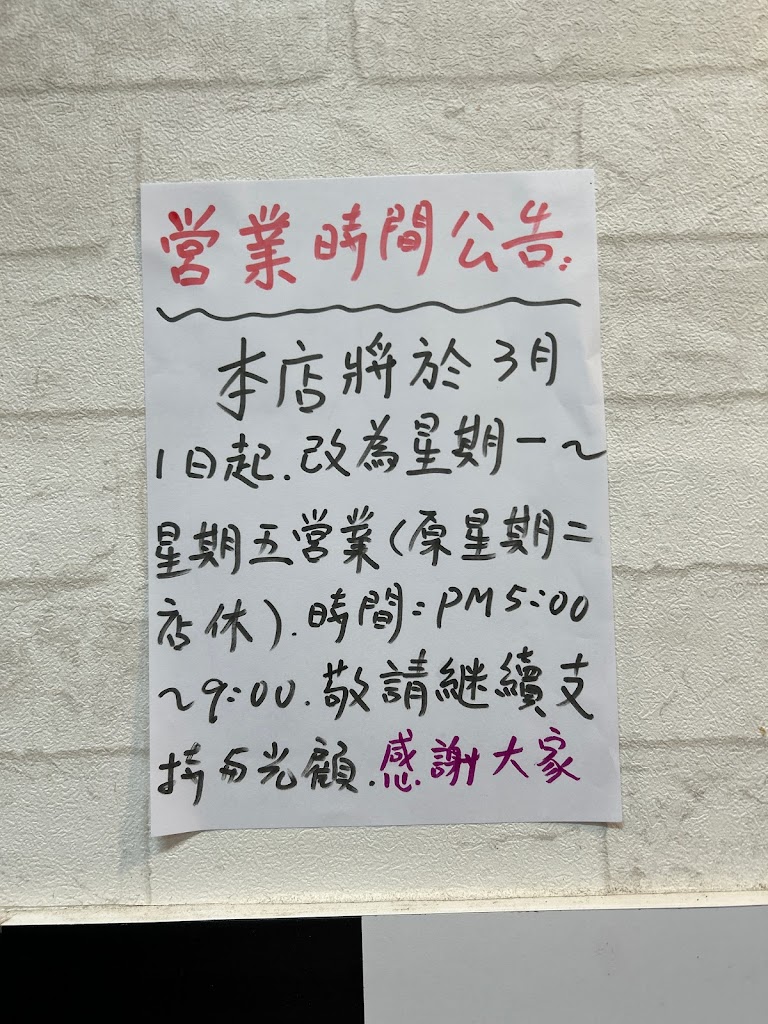 営業時間公告:
本店將於3月
1日起.改為星期一~
星期五営業(原星期二
店休).時間:PM5:00
~9:00.敬請継續支
持与光顧.感謝大家